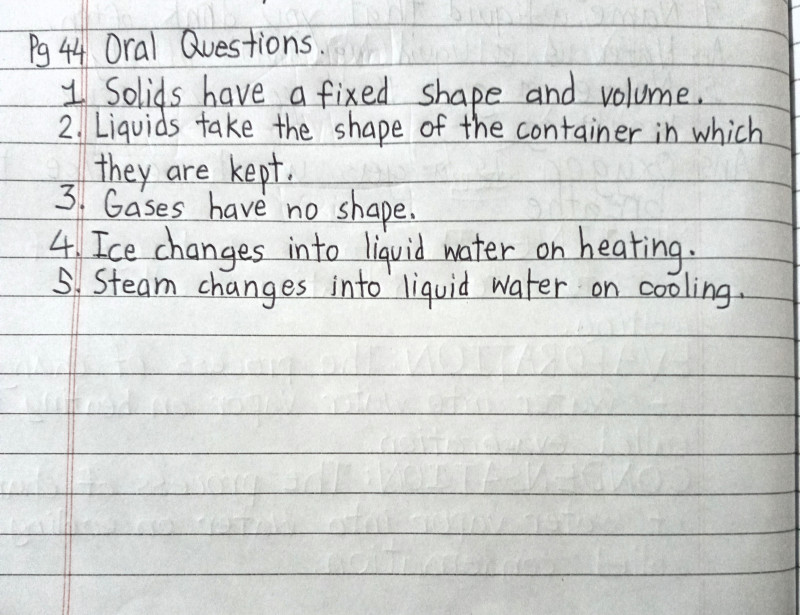 Pg 44 Oral Questions.
1. Solids have a fixed shape and volume.
2. Liquids take the shape of the container in which
they are kept.
3. Gases have no shape.
4. Ice changes into liquid water on heating.
5. Steam changes into liquid water on cooling.